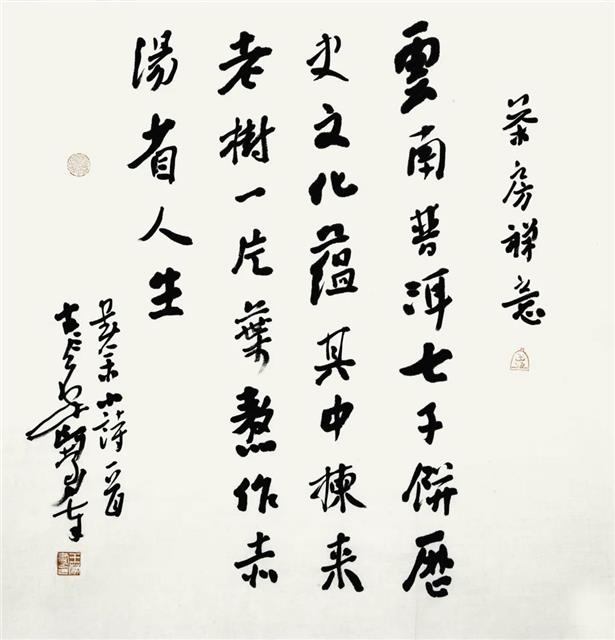 茶房禅意
雲南普洱七子餅歷
史文化蘊其中揀来
老樹一片葉熬作赤
湯省人生
小詩一首